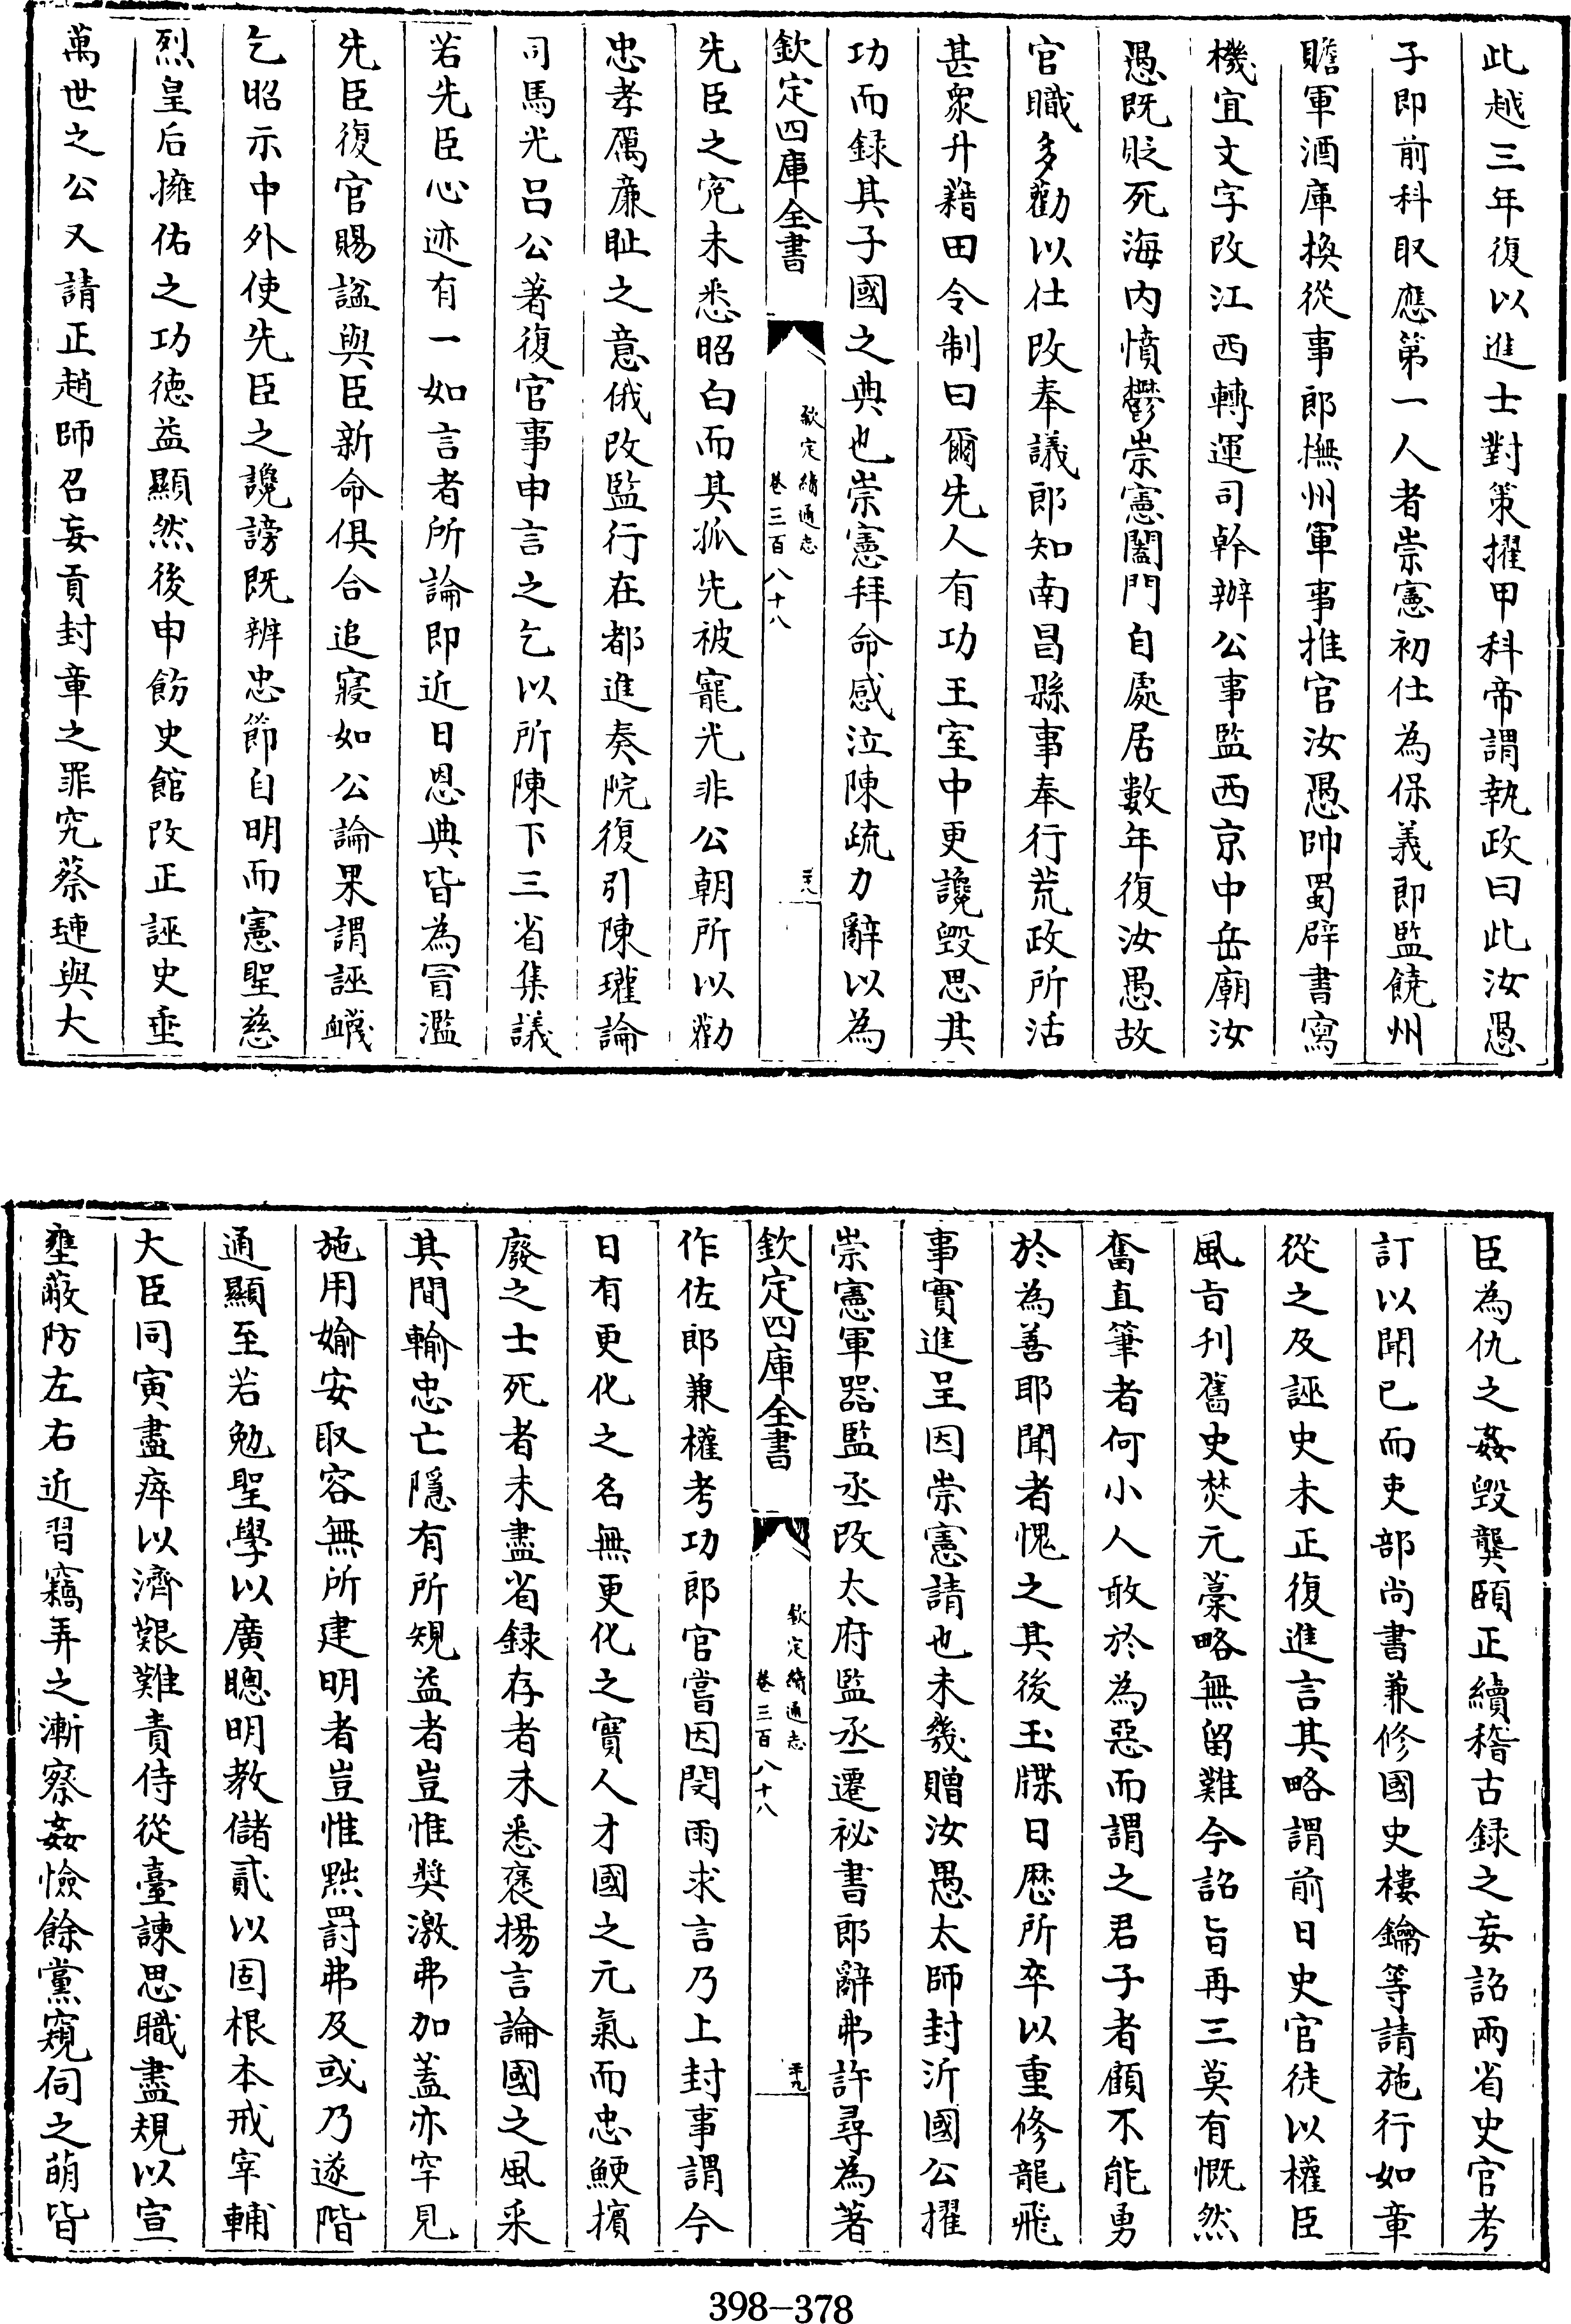 此越三年復以進士對策擢甲科帝謂執政曰此汝愚
子即前科取應第一人者崇憲初仕為保義郎監饒州
贍軍酒庫換從事郎撫州軍事推官汝愚帥蜀辟書寫
機宜文字改江西轉運司幹辦公事監西京中岳廟汝
愚既貶死海内憤鬱崇憲闔門自處居數年復汝愚故
官職多勸以仕改奉議郎知南昌縣事奉行荒政所活
甚衆升藉田令制曰爾先人有功王室中更讒毁思其
功而録其子國之典也崇憲拜命感泣陳疏力辭以為
欽定四庫全書
欽定續通志
卷三百八十八
三十八
先臣之寃未悉昭白而其孤先被寵光非公朝所以勸
忠孝厲亷耻之意俄改監行在都進奏院復引陳瓘論
司馬光吕公著復官事申言之乞以所陳下三省集議
若先臣心迹有一如言者所論即近日恩典皆為冒濫
先臣復官賜諡與臣新命俱合追寢如公論果謂誣衊
乞昭示中外使先臣之讒謗既辨忠節自明而憲聖慈
烈皇后擁佑之功徳益顯然後申飭史館改正誣史垂
萬世之公又請正趙師召妄貢封章之罪究蔡璉與大
臣為仇之姦毁龔頤正續稽古録之妄詔兩省史官考
訂以聞已而吏部尚書兼修國史樓鑰等請施行如章
從之及誣史未正復進言其略謂前日史官徒以權臣
風旨刋舊史焚元藁略無留難今詔旨再三莫有慨然
奮直筆者何小人敢於為惡而謂之君子者顧不能勇
於為善耶聞者愧之其後玉牒日厯所卒以重修龍飛
事實進呈因崇憲請也未幾贈汝愚太師封沂國公擢
崇憲軍器監丞改太府監丞遷祕書郎辭弗許尋為著
欽定四庫全書
欽定續通志
卷三百八十八
三十九
作佐郎兼權考功郎官嘗因閔雨求言乃上封事謂今
日有更化之名無更化之實人才國之元氣而忠鯁擯
廢之士死者未盡省録存者未悉褒揚言論國之風采
其間輸忠亡隱有所規益者豈惟奬激弗加蓋亦罕見
施用婾安取容無所建明者豈惟黜罰弗及或乃遂階
通顯至若勉聖學以廣聰明教儲貳以固根本戒宰輔
大臣同寅盡瘁以濟艱難責侍從臺諫思職盡規以宣
壅蔽防左右近習竊弄之漸察姦憸餘黨窺伺之萌皆
398—378